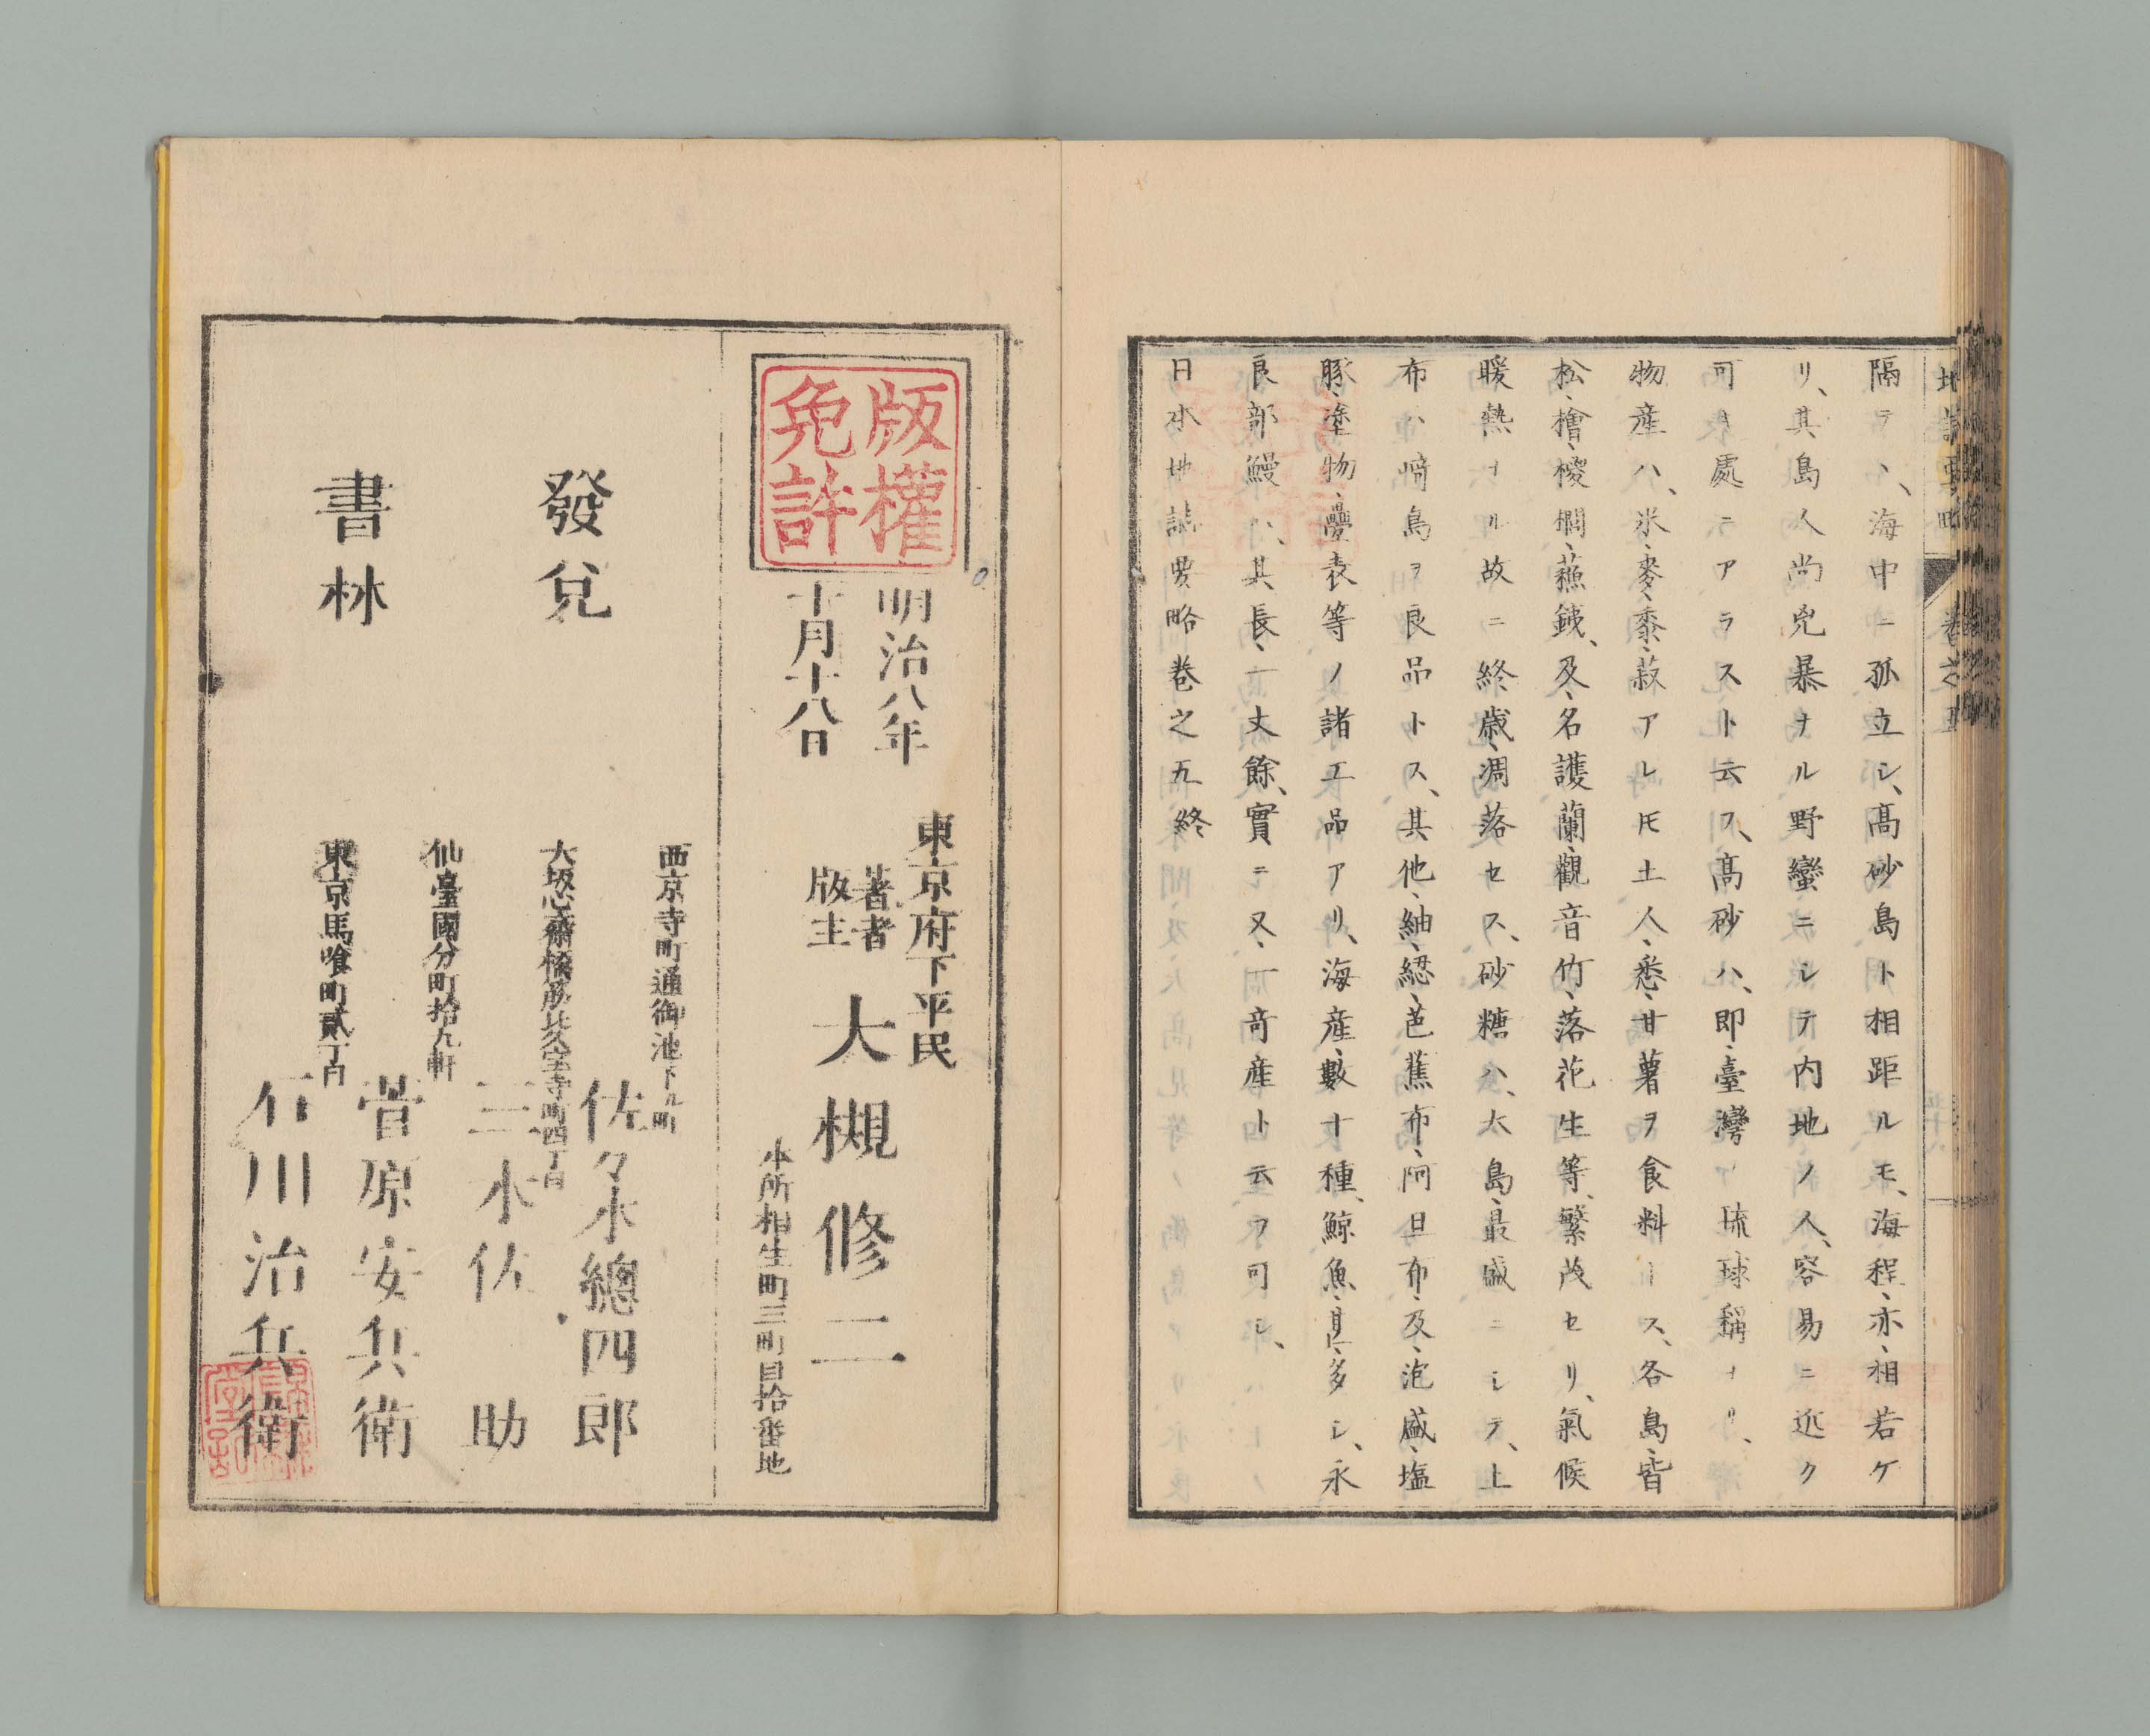 地誌要略　卷之五
隔テヽ、海中ニ孤立シ、髙砂島ト相距ルモ、海程、亦、相若ケ
リ、其島人尚兇暴ナル野蠻ニシテ内地ノ人、容易ニ近ク
可キ處ニアラスト云フ、髙砂ハ、即、臺灣ノ琉球稱ナリ、
物産ハ、米、麥、黍、菽アレ𪜈土人、悉、甘薯ヲ食料トス、各島、皆
松、檜、椶櫚、蘓鉄、及、名護蘭、觀音竹、落花生等、繁茂セリ、氣候
暖熱ナル故ニ終歳、凋落セス、砂糖ハ、大島、最盛ニシテ、上
布ハ、﨑島ヲ良品トス、其他、紬、緦、芭蕉布、阿旦布、及、泡盛、塩
豚、塗物、疊表等ノ諸工品アリ、海産、數十種、鯨魚、甚、多シ、永
良部鰻ハ、其長、一丈餘、實ニ又、一竒産ト云フ可シ、
日本地誌要略卷之五終
版權
免許
明治八年
十月十八日
東京府下平民
著者
版主
大槻修二
本所相生町三町目拾番地
發兌
書林
西京寺町通御池下ル町
佐々木總四郎
大坂心齋橋筋北久宝寺町四丁目
三木佐助
仙臺國分町拾九軒
菅原安兵衛
東京馬喰町貳丁目
石川治兵衛